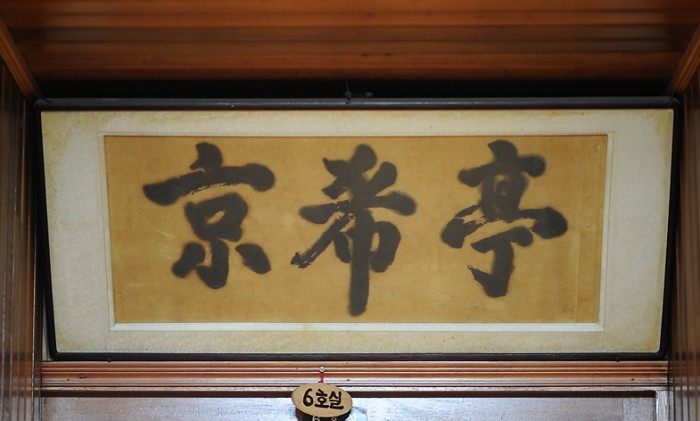 京希亭
6호실